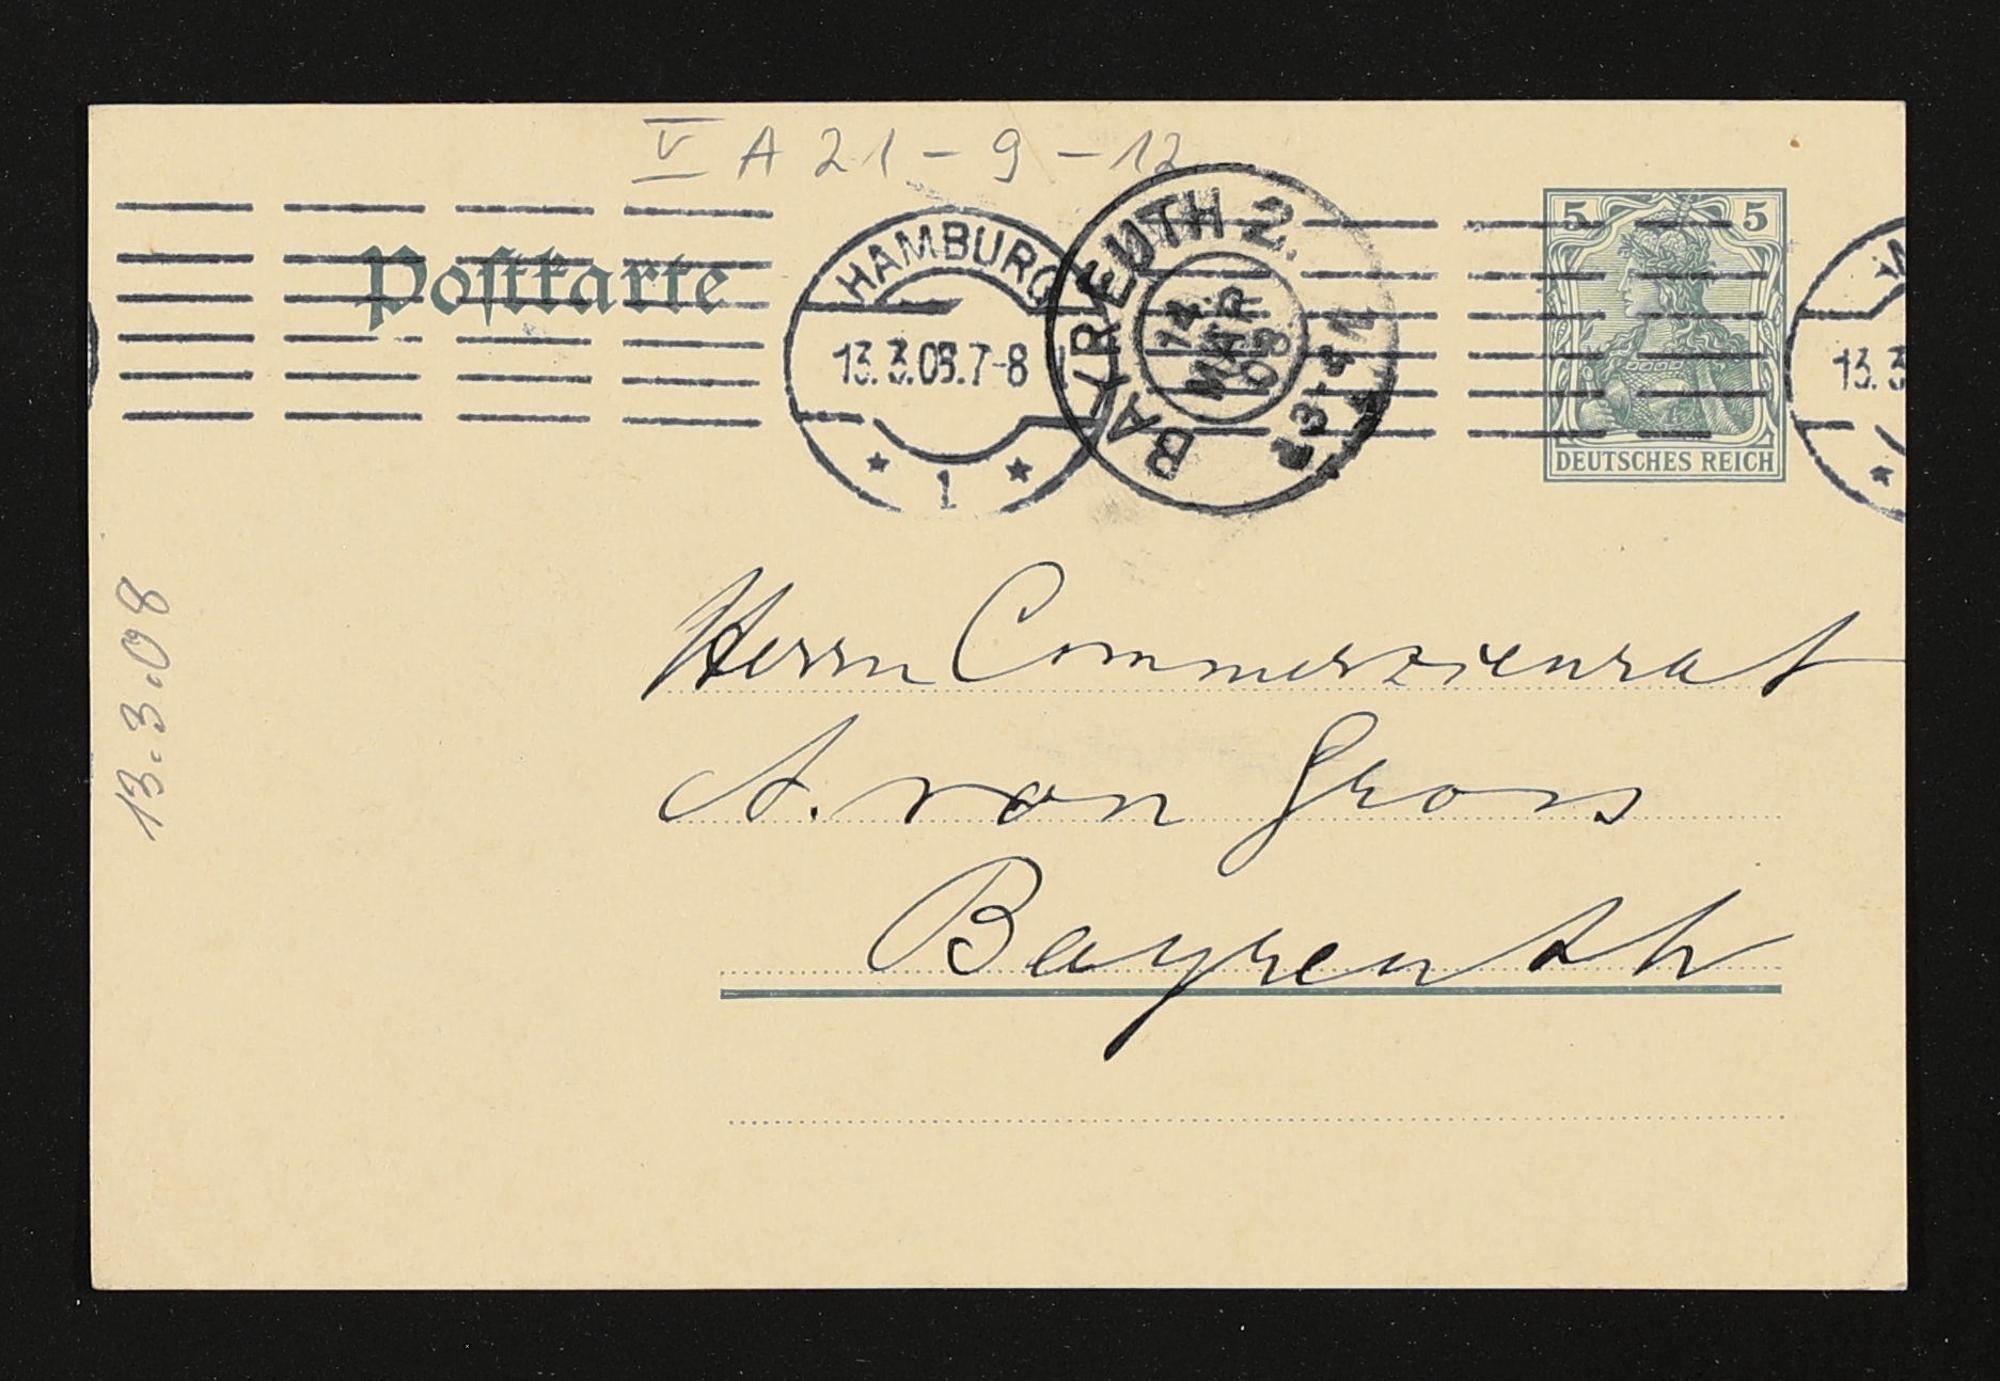 V A 21-9-12
Postkarte
HAMBURG
13.3.08.7-8
* 1 *
BAYREUTH 2.
14
MAR
08
3-4
5 5
DEUTSCHES REICH
13.3
13.3.08
Herrn Commerzienrat
A. von Gross
Bayreuth